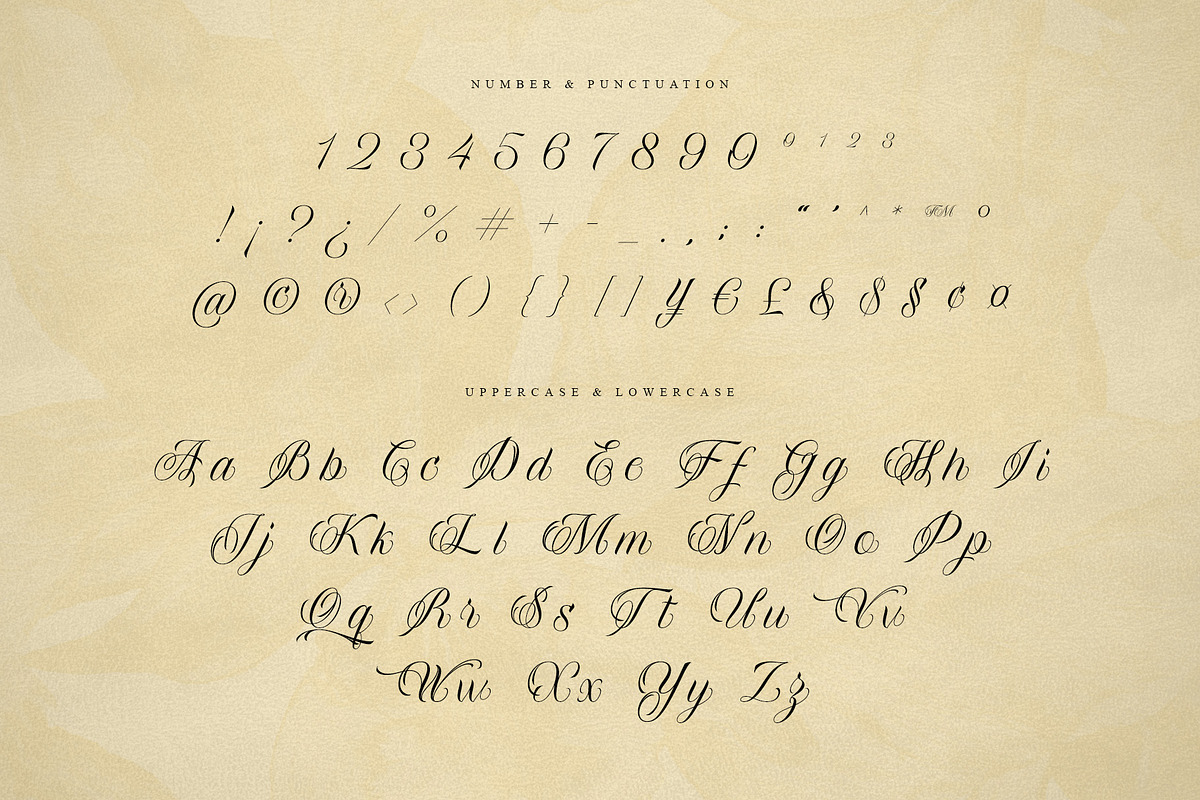 NUMBER & PUNCTUATION
1 2 3 4 5 6 7 8 9 0 ⁰ ¹ ² ³
! ¡ ? ¿ / % # + - _ . , ; : “ ’ ^ * ™ °
@ © ® < > ( ) { } [ ] ¥ € £ & $ § ¢ ¤
UPPERCASE & LOWERCASE
Aa Bb Cc Dd Ee Ff Gg Hh Ii
Jj Kk Ll Mm Nn Oo Pp
Qq Rr Ss Tt Uu Vv
Ww Xx Yy Zz